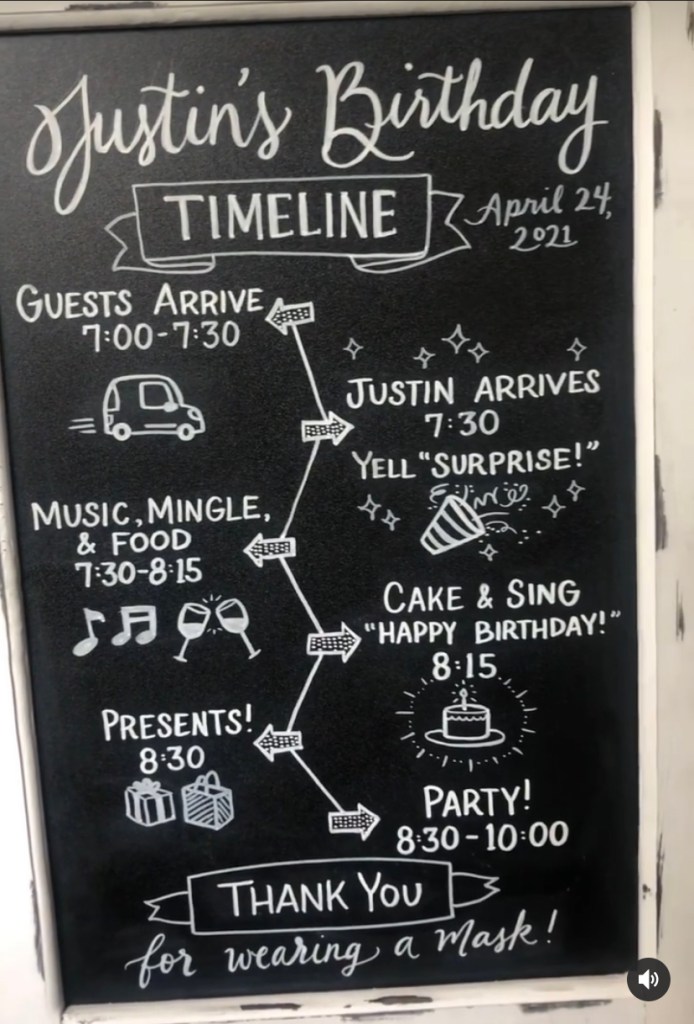 Justin's Birthday
TIMELINE
April 24,
2021
GUESTS ARRIVE
7:00-7:30
JUSTIN ARRIVES
7:30
YELL "SURPRISE!"
MUSIC, MINGLE,
& FOOD
7:30-8:15
CAKE & SING
"HAPPY BIRTHDAY!"
8:15
PRESENTS!
8:30
PARTY!
8:30-10:00
THANK YOU
for wearing a mask!